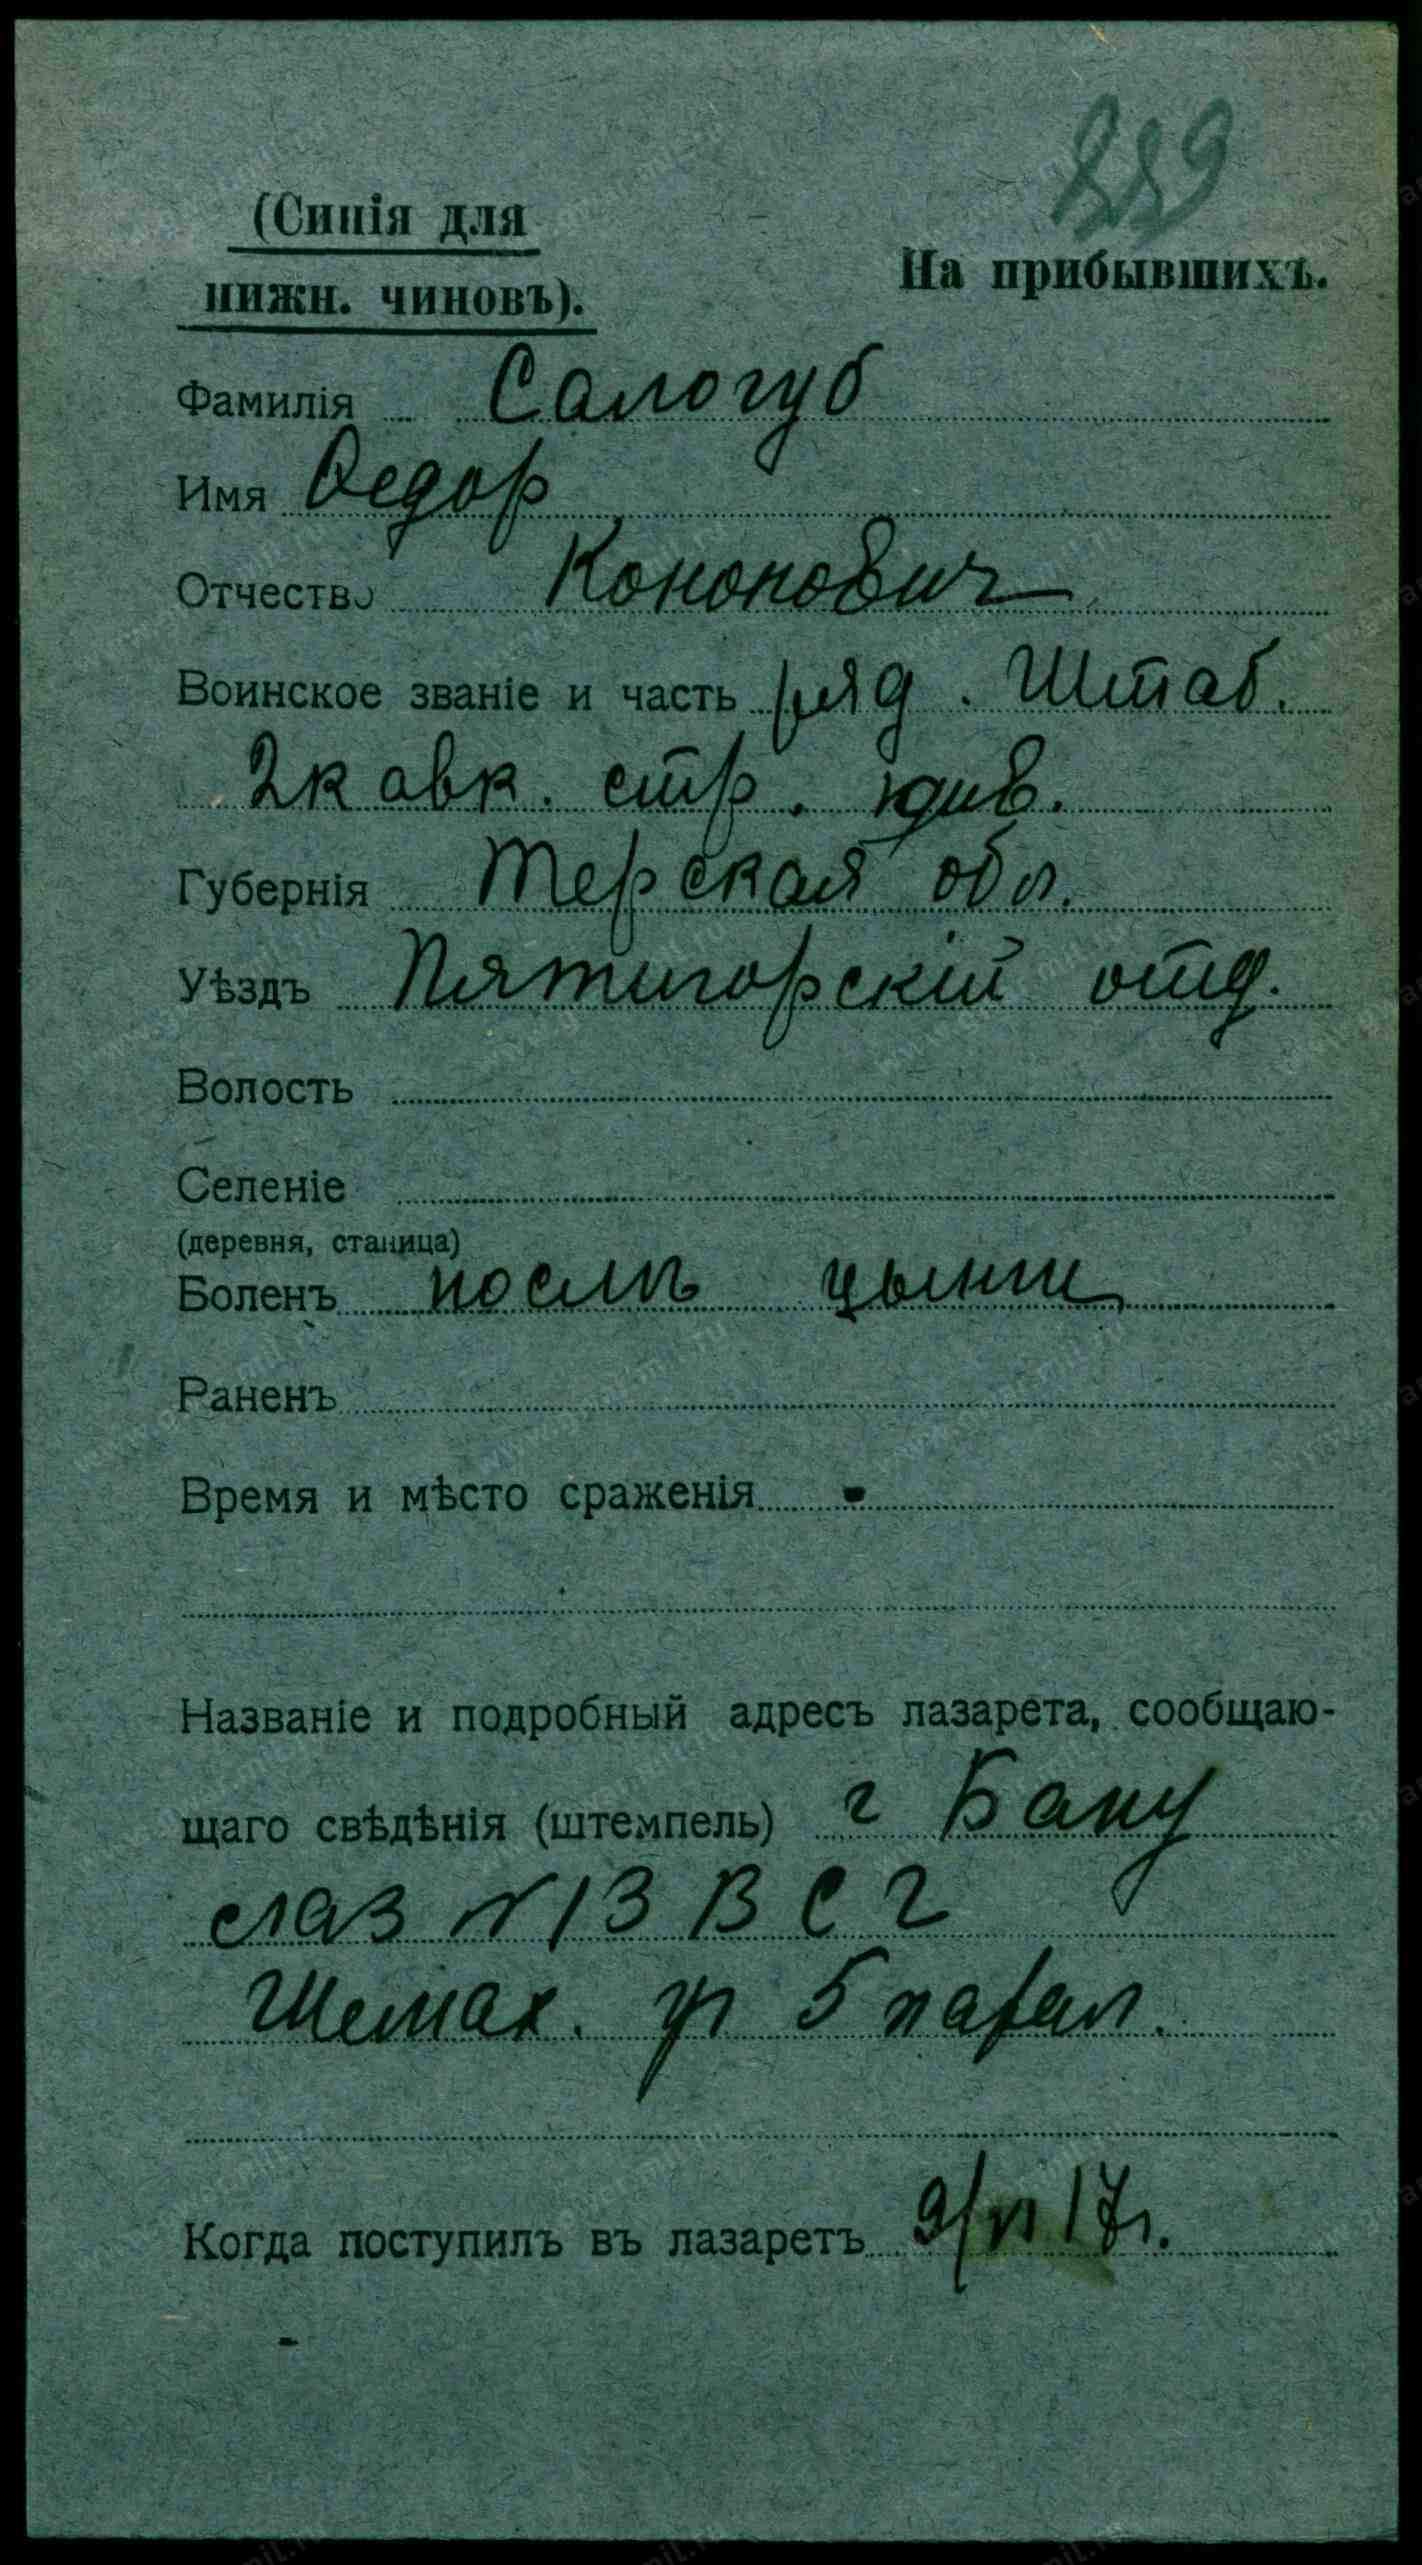 229
(Синія для
нижн. чиновъ).
На прибывшихъ.
Фамилія Салогуб
Имя Ѳедор
Отчество Кононович
Воинское званіе и часть ряд. Штаб.
2 кавк. стр. див.
Губернія Терская обл.
Уѣздъ Пятигорскій отд.
Волость
Селеніе
(деревня, станица)
Боленъ послѣ цынги
Раненъ
Время и мѣсто сраженія -
Названіе и подробный адресъ лазарета, сообщаю-
щаго свѣдѣнія (штемпель) г Баку
слаз №13 В С Г
Шемах. ул 5 парал.
Когда поступилъ въ лазаретъ 9/VI 17г.